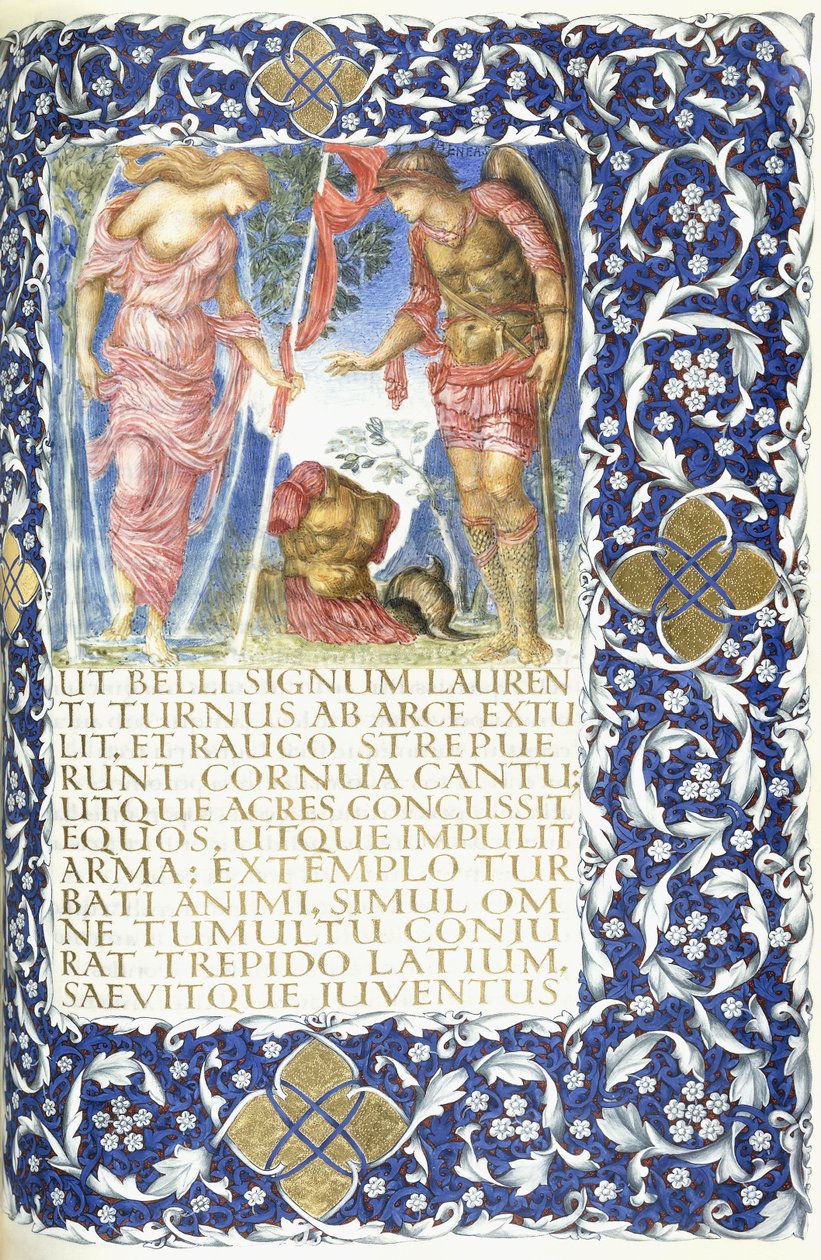 AENEAS
UT BELLI SIGNUM LAUREN
TI TURNUS AB ARCE EXTU
LIT, ET RAUCO STREPUE
RUNT CORNUA CANTU;
UTQUE ACRES CONCUSSIT
EQUOS, UTQUE IMPULIT
ARMA: EXTEMPLO TUR
BATI ANIMI, SIMUL OM
NE TUMULTU CONJU
RAT TREPIDO LATIUM,
SAEVITQUE JUVENTUS